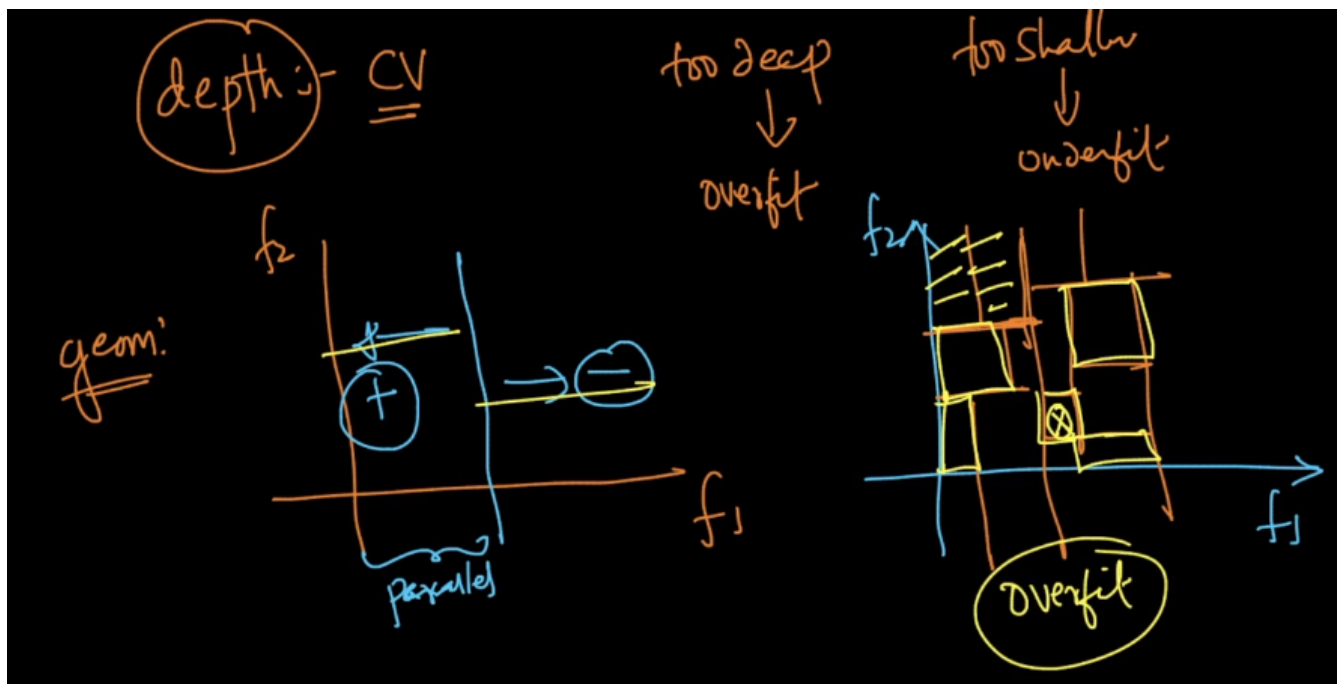 depth :- CV
too deep
overfit
too shallow
underfit
geom:
f2
+
-
f1
parallel
f2
f1
overfit